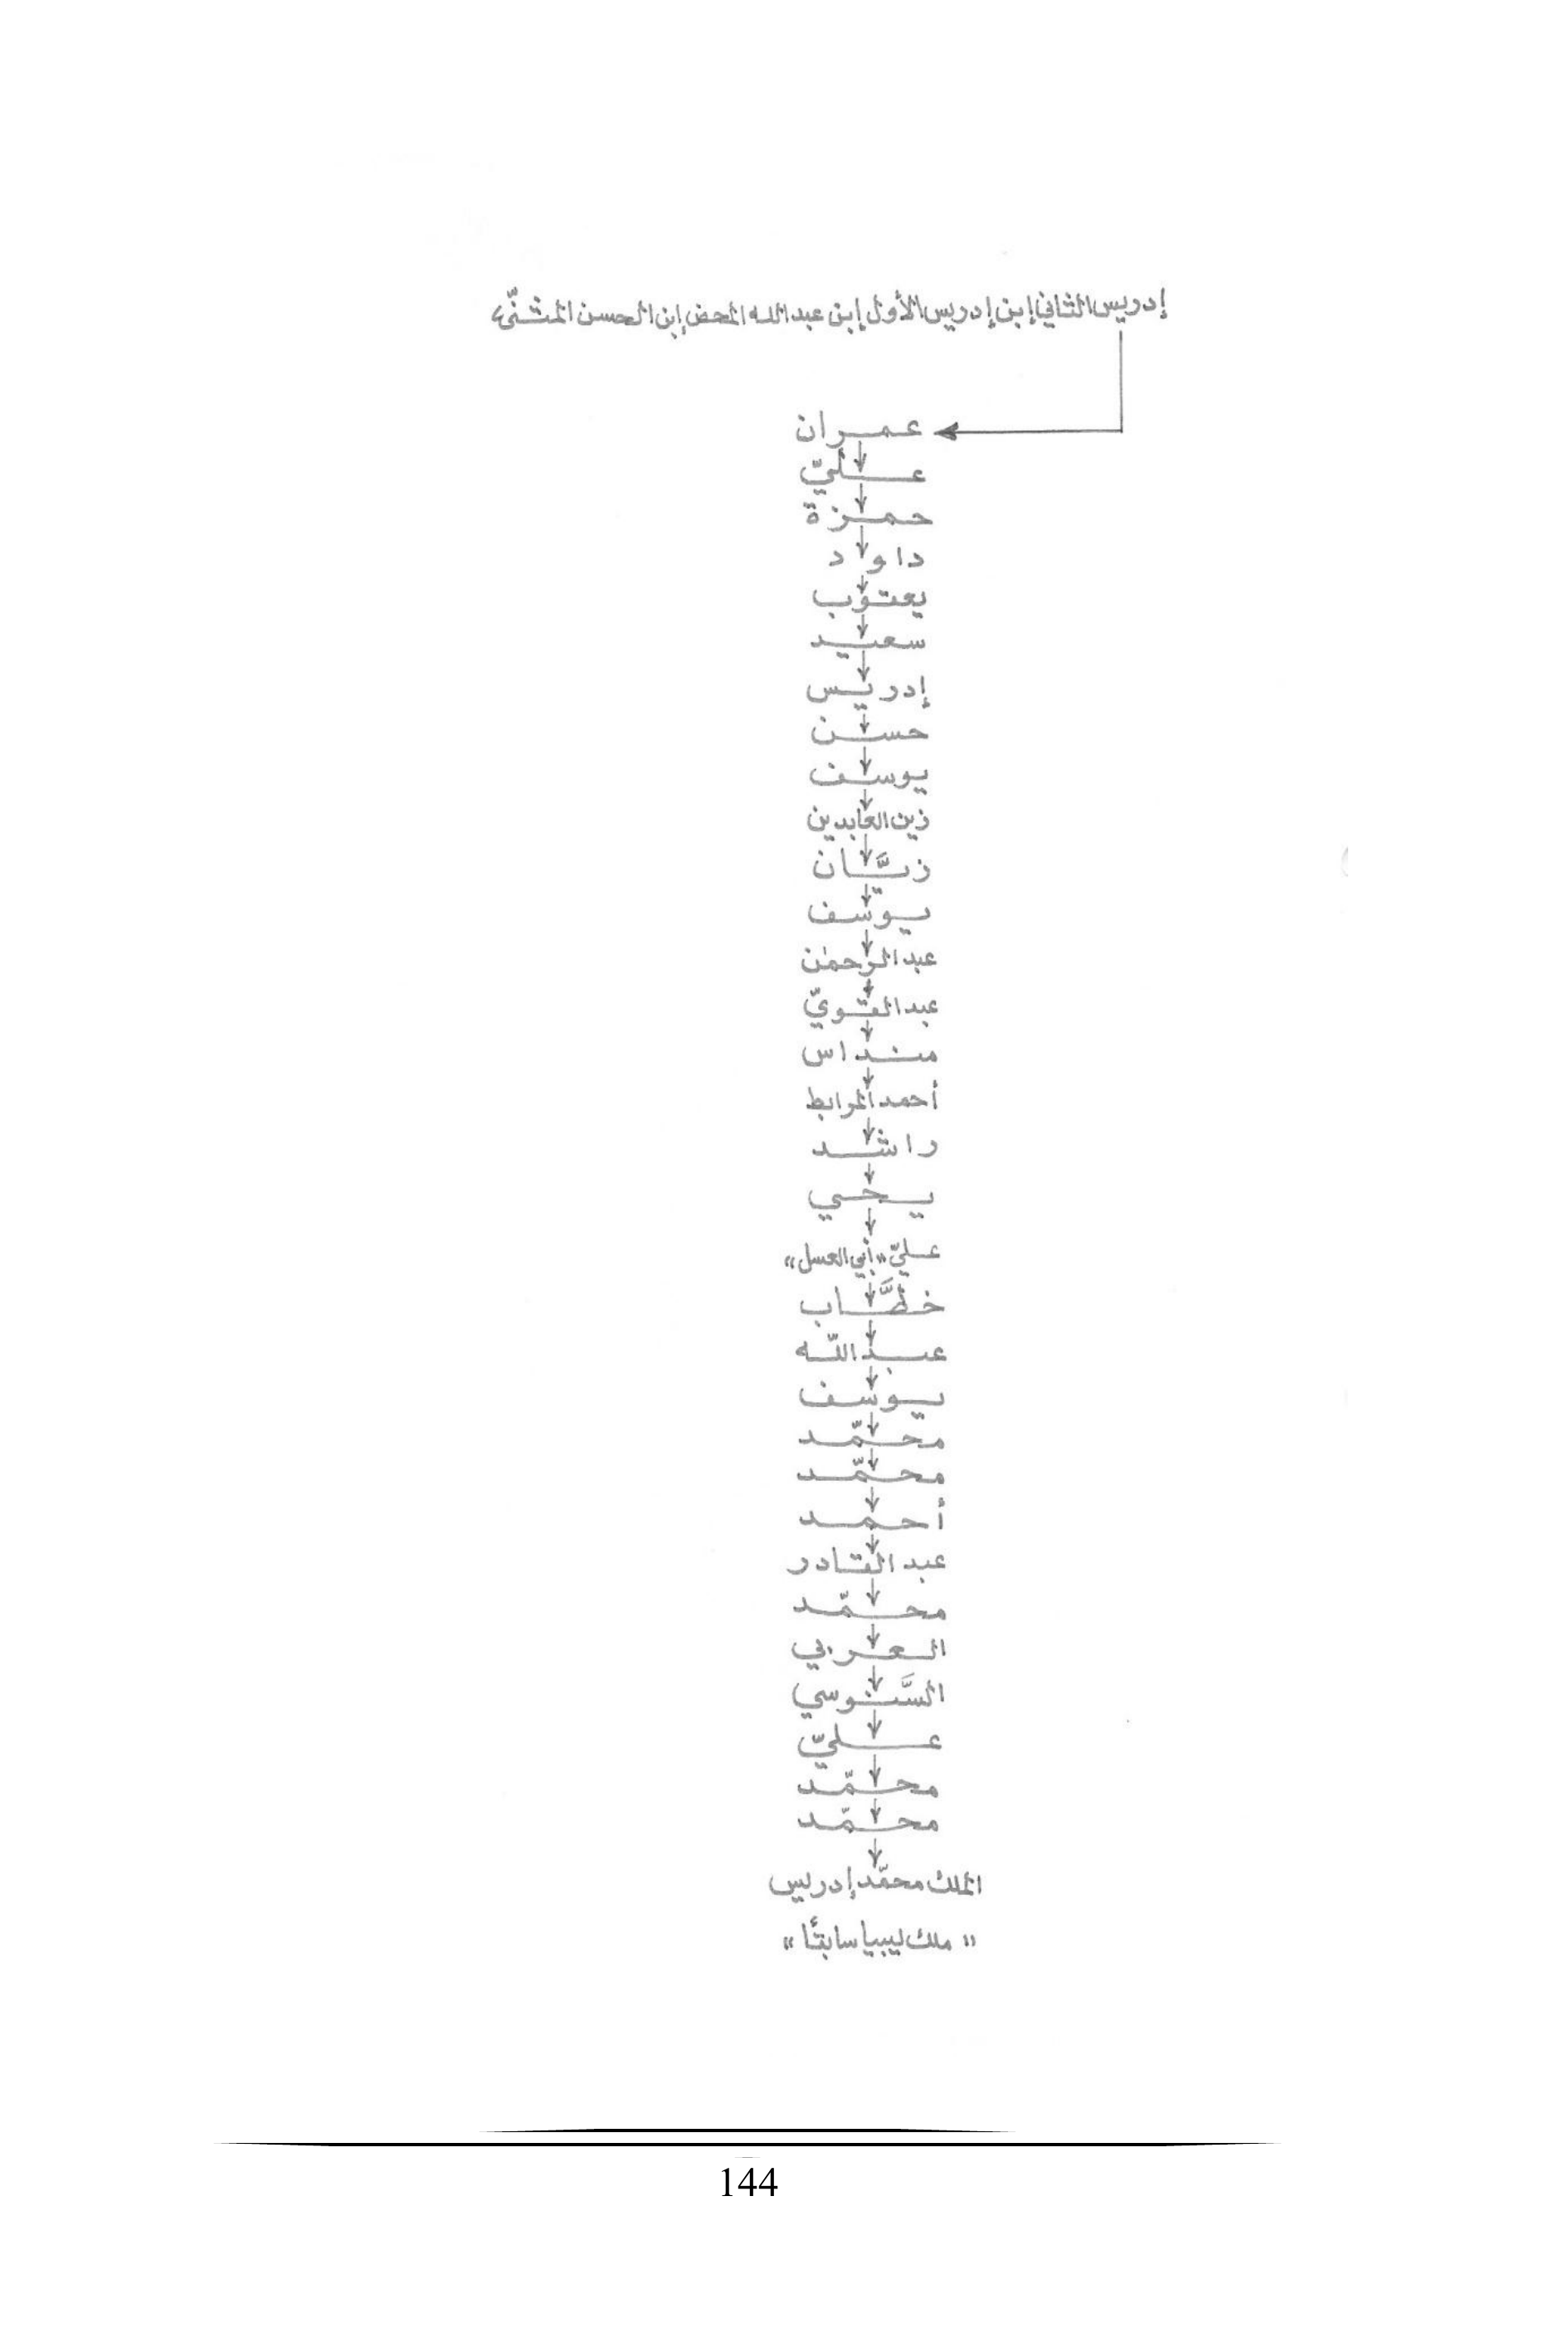 إدريس الثاني إبن إدريس الأول إبن عبدالله المحض إبن الحسن المثنّى
عمران
عليّ
حمزة
داود
يعقوب
سعيد
إدريس
حسن
يوسف
زين العابدين
زيَّان
يوسف
عبدالرحمٰن
عبدالقويّ
منداس
أحمد المرابط
راشد
يحيي
عليّ «أبي العسل»
خطَّاب
عبداللّه
يوسف
محمّد
محمّد
أحمد
عبدالقادر
محمّد
العربي
السَّنوسي
عليّ
محمّد
محمّد
الملك محمّد إدريس
«ملك ليبيا سابقًا»
144